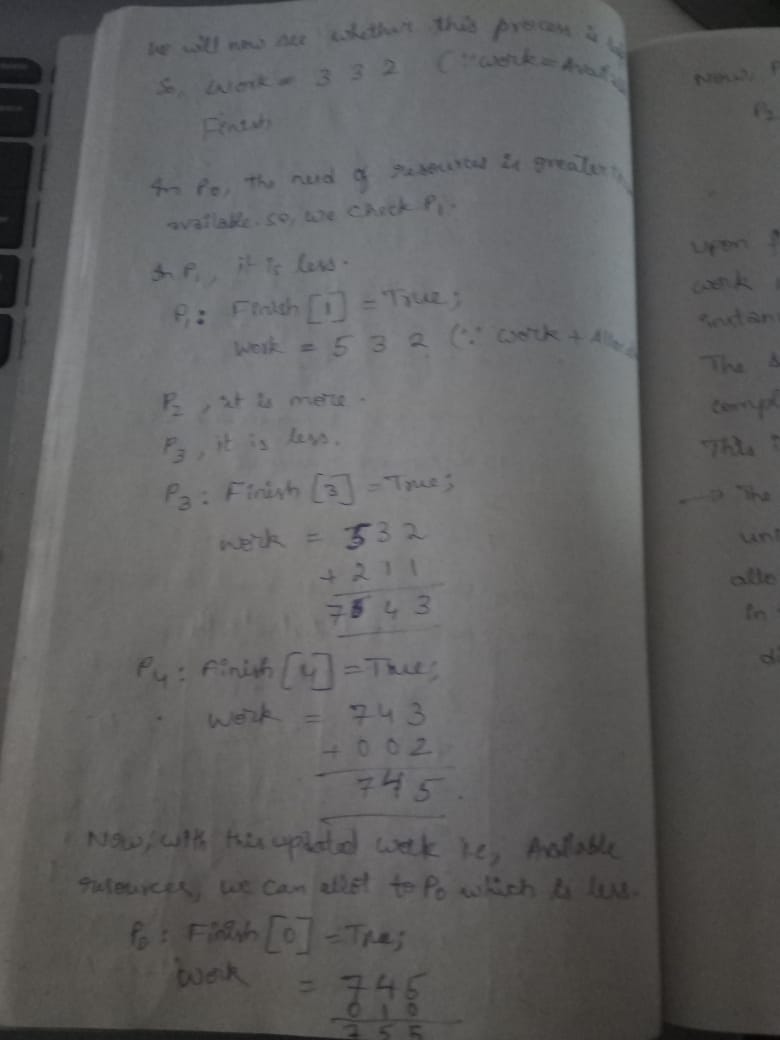 we will now see whether this process is
So, Work = 3 3 2 (∵ work = Avail
Finish
In P0, the need of resources is greater
available. so, we check P1.
In P1, it is less.
P1: Finish [1] = True;
Work = 5 3 2 (∵ work +
P2, it is more.
P3, it is less.
P3: Finish [3] = True;
work = 5 3 2
+ 2 1 1
7 4 3
P4: Finish [4] = True;
work = 7 4 3
+ 0 0 2
7 4 5.
Now, with this updated work ie, Available
resources, we can allot to P0 which is less.
P0: Finish [0] = True;
Work = 7 4 5
0 1 0
7 5 5
Now,
P2
upon
work
instan
The
compl
This
→ The
un
allo
in
di